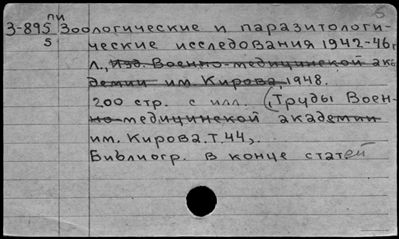 пи
З-895 Зоологические и паразитологи-
5 ческие исследования 1942-46г
Л., Изд. Военно-медицинской ака
демии им. Кирова, 1948.
200 стр. с илл. (Труды Воен-
но-медицинской академии
им. Кирова. Т. 44,.
Библиогр. в конце статей